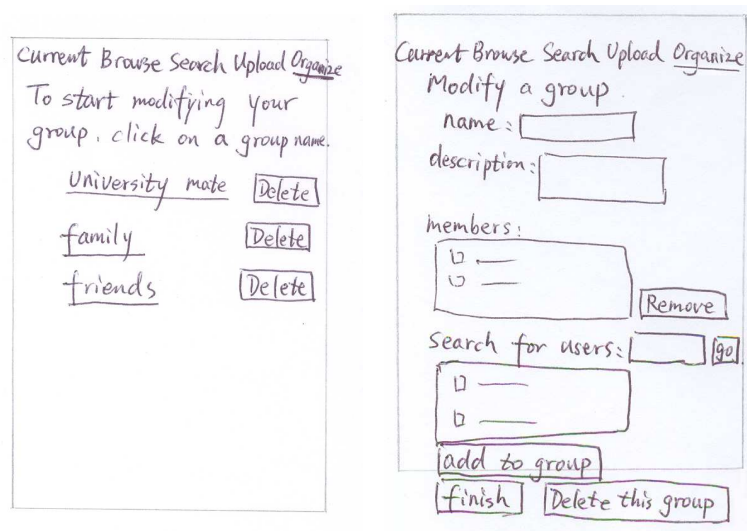 Current Browse Search Upload Organize
To start modifying your
group, click on a group name.
University mate Delete
family Delete
friends Delete
Current Browse Search Upload Organize
Modify a group.
name:
description:
members:
Remove
Search for users: go
add to group
finish Delete this group